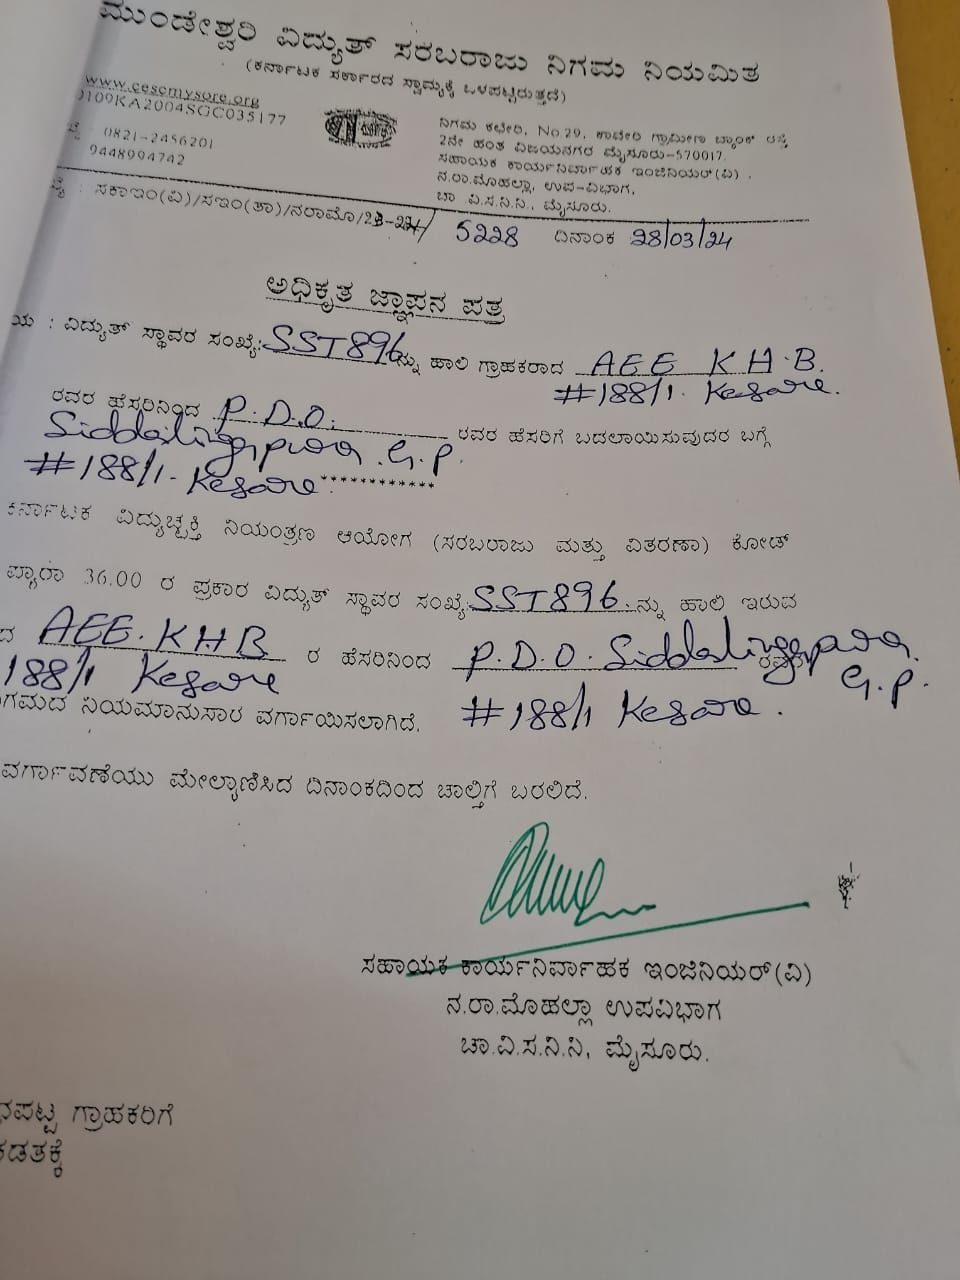 ಮುಂಡೇಶ್ವರಿ ವಿದ್ಯುತ್ ಸರಬರಾಜು ನಿಗಮ ನಿಯಮಿತ
(ಕರ್ನಾಟಕ ಸರ್ಕಾರದ ಸ್ವಾಮ್ಯಕ್ಕೆ ಒಳಪಟ್ಟಿರುತ್ತದೆ)
www.cescmysore.org
0109KA2004SGC035177
0821-2456201
9448994742
ನಿಗಮ ಕಛೇರಿ, No.29, ಕಾವೇರಿ ಗ್ರಾಮೀಣ ಬ್ಯಾಂಕ್ ರಸ್ತೆ
2ನೇ ಹಂತ ವಿಜಯನಗರ ಮೈಸೂರು-570017.
ಸಹಾಯಕ ಕಾರ್ಯನಿರ್ವಾಹಕ ಇಂಜಿನಿಯರ್(ವಿ) .
ನ.ರಾ.ಮೊಹಲ್ಲಾ, ಉಪ-ವಿಭಾಗ,
ಚಾ .ವಿ.ಸ.ನಿ.ನಿ., ಮೈಸೂರು.
ಸಕಾಇಂ(ವಿ)/ಸಇಂ(ತಾ)/ನರಾಮೊ/23-24/ 5228 ದಿನಾಂಕ 28/03/24
ಅಧಿಕೃತ ಜ್ಞಾಪನ ಪತ್ರ
ಯ : ವಿದ್ಯುತ್ ಸ್ಥಾವರ ಸಂಖ್ಯೆ: SST896 ನ್ನು ಹಾಲಿ ಗ್ರಾಹಕರಾದ AEE K H.B.
#188/1. Kesare.
ರವರ ಹೆಸರಿನಿಂದ P.D.O. ರವರ ಹೆಸರಿಗೆ ಬದಲಾಯಿಸುವುದರ ಬಗ್ಗೆ
Siddalingapura .G.P.
#188/1. Kesare. ************
ಕರ್ನಾಟಕ ವಿದ್ಯುಚ್ಛಕ್ತಿ ನಿಯಂತ್ರಣ ಆಯೋಗ (ಸರಬರಾಜು ಮತ್ತು ವಿತರಣಾ) ಕೋಡ್
ಪ್ಯಾರಾ 36.00 ರ ಪ್ರಕಾರ ವಿದ್ಯುತ್ ಸ್ಥಾವರ ಸಂಖ್ಯೆ: SST896. ನ್ನು ಹಾಲಿ ಇರುವ
ದ AEE. K H B ರ ಹೆಸರಿನಿಂದ P.D.O. Siddalingapura.
G.P.
188/1 Kesare #188/1 Kesare.
ಗಮದ ನಿಯಮಾನುಸಾರ ವರ್ಗಾಯಿಸಲಾಗಿದೆ.
ವರ್ಗಾವಣೆಯು ಮೇಲ್ಕಾಣಿಸಿದ ದಿನಾಂಕದಿಂದ ಚಾಲ್ತಿಗೆ ಬರಲಿದೆ.
ಸಹಾಯಕ ಕಾರ್ಯನಿರ್ವಾಹಕ ಇಂಜಿನಿಯರ್(ವಿ)
ನ.ರಾ.ಮೊಹಲ್ಲಾ ಉಪವಿಭಾಗ
ಚಾ.ವಿ.ಸ.ನಿ.ನಿ, ಮೈಸೂರು.
ನಪಟ್ಟ ಗ್ರಾಹಕರಿಗೆ
ಕಡತಕ್ಕೆ